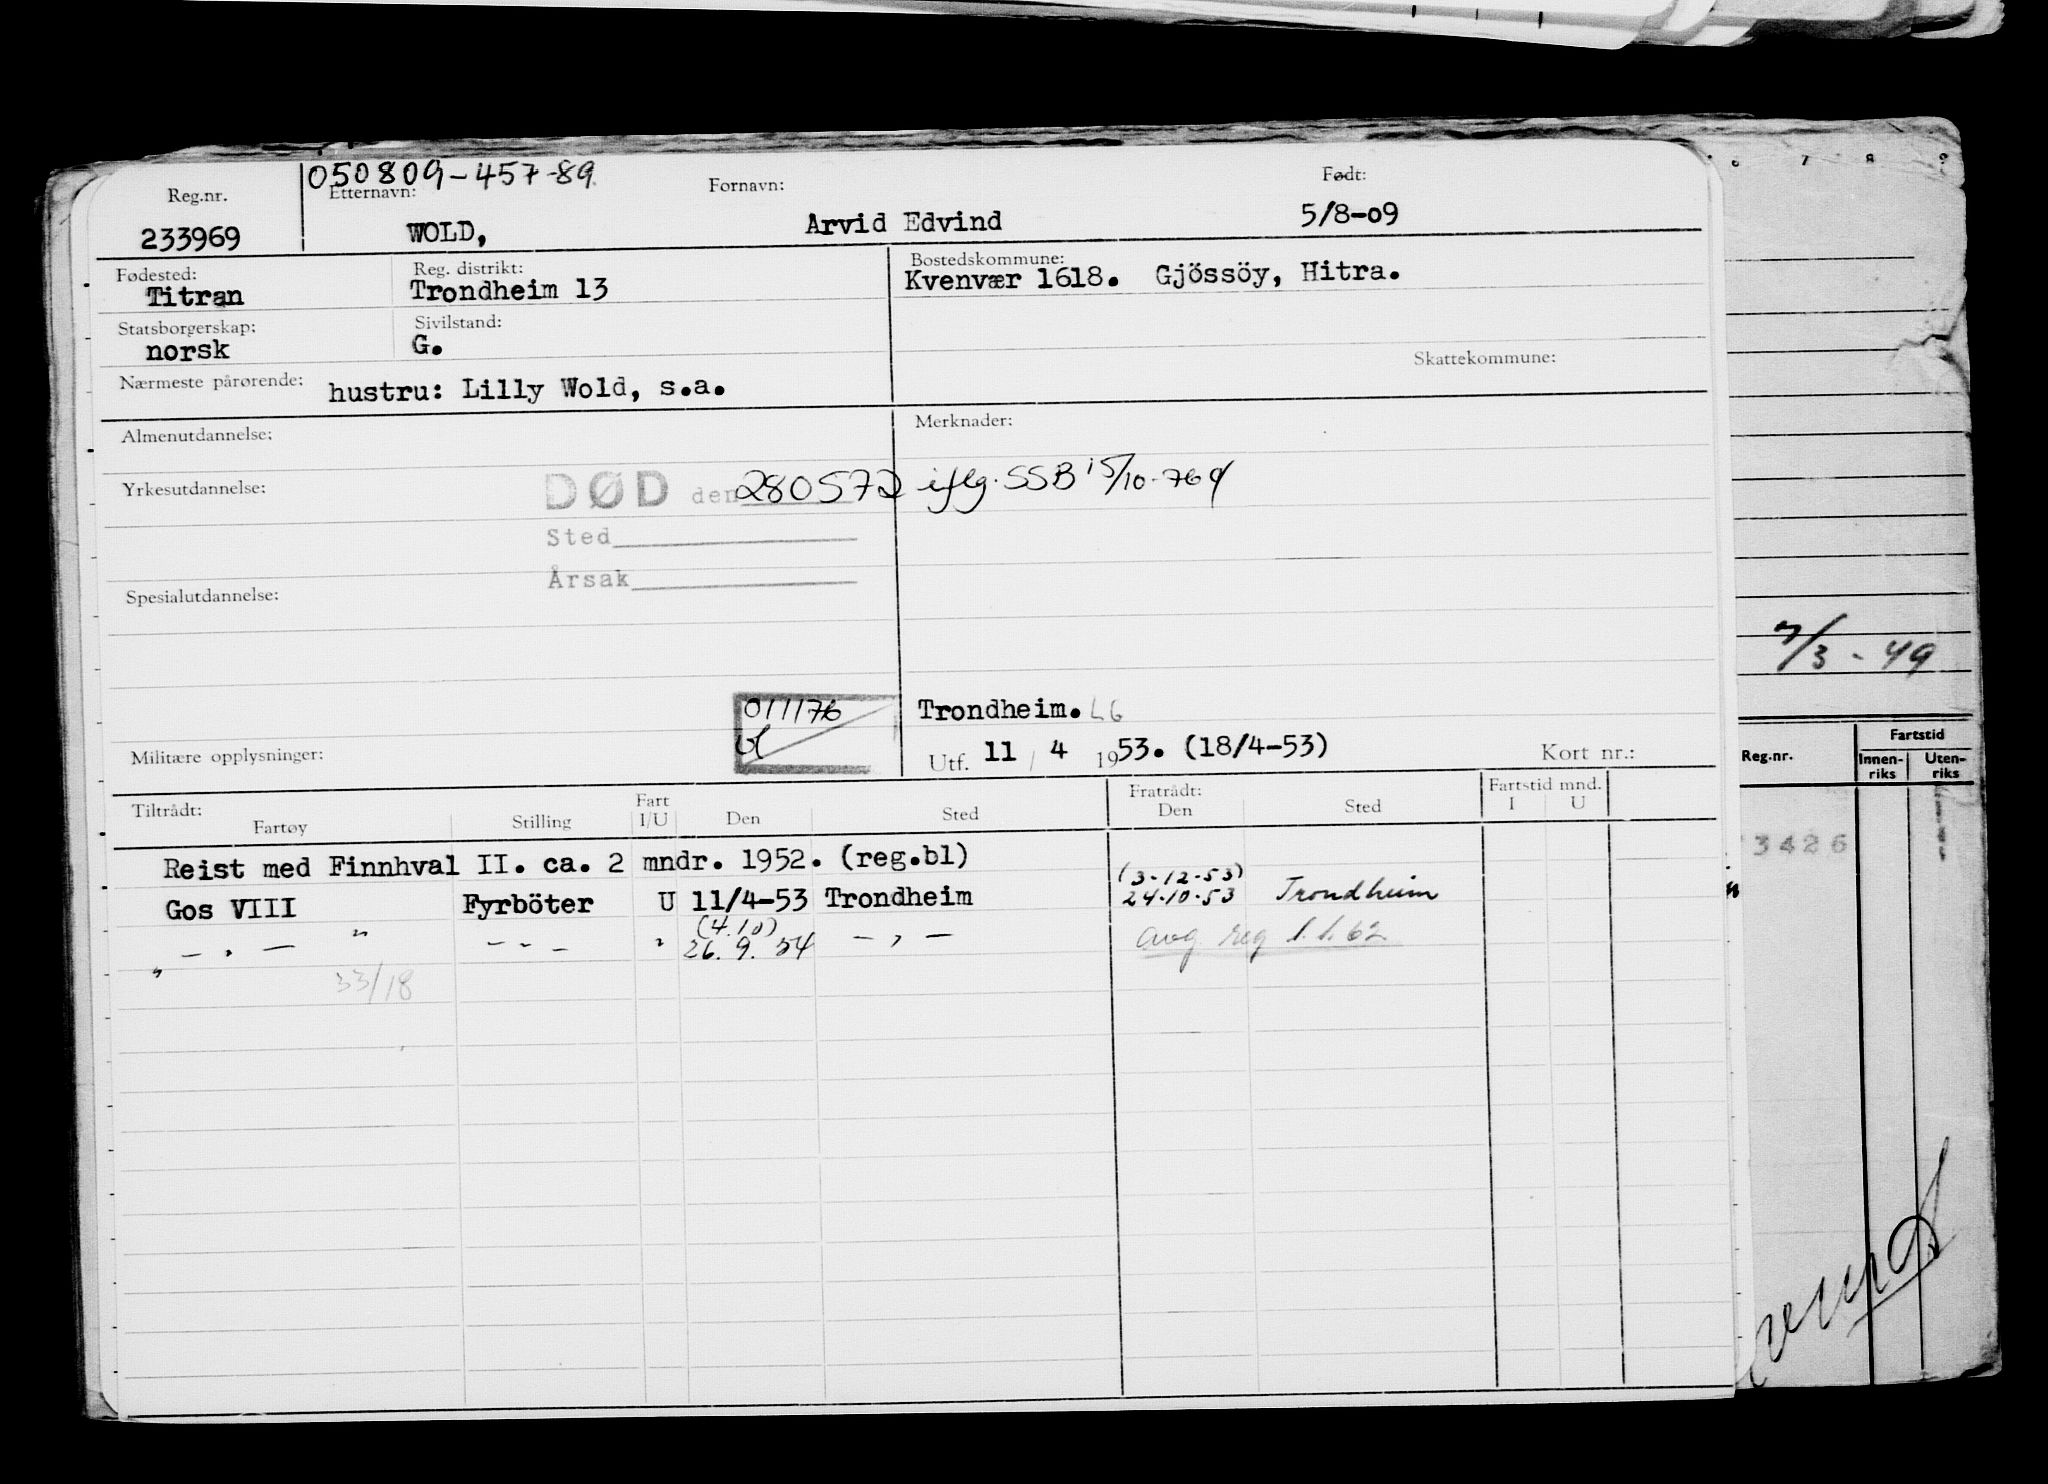 050809-457-89
Reg.nr. Etternavn: Fornavn: Født:
233969 WOLD, Arvid Edvind 5/8-09
Fødested: Reg. distrikt: Bostedskommune:
Titran Trondheim 13 Kvenvær 1618. Gjössöy, Hitra.
Statsborgerskap: Sivilstand:
norsk G.
Skattekommune:
Nærmeste pårørende: hustru: Lilly Wold, s.a.
Almenutdannelse: Merknader:
Yrkesutdannelse: DØD den 280572 iflg. SSB 15/10-76
Sted
Årsak
Spesialutdannelse:
011176 Trondheim. LG
Militære opplysninger: Utf. 11 / 4 1953. (18/4-53) Kort nr.:
Tiltrådt: Fart Fratrådt: Fartstid mnd.
Fartøy Stilling I/U Den Sted Den Sted I U
Reist med Finnhval II. ca. 2 mndr. 1952. (reg.bl)
(3-12-53)
Gos VIII Fyrböter U 11/4-53 Trondheim 24.10.53 Trondheim
(4.10)
— " — " - - - " 26. 9. 54 — " — avg reg 1.1.62
"
33/18
6 7 8 9
7/3 - 49
Fartstid
Reg.nr. Innen-riks Uten-riks
3426